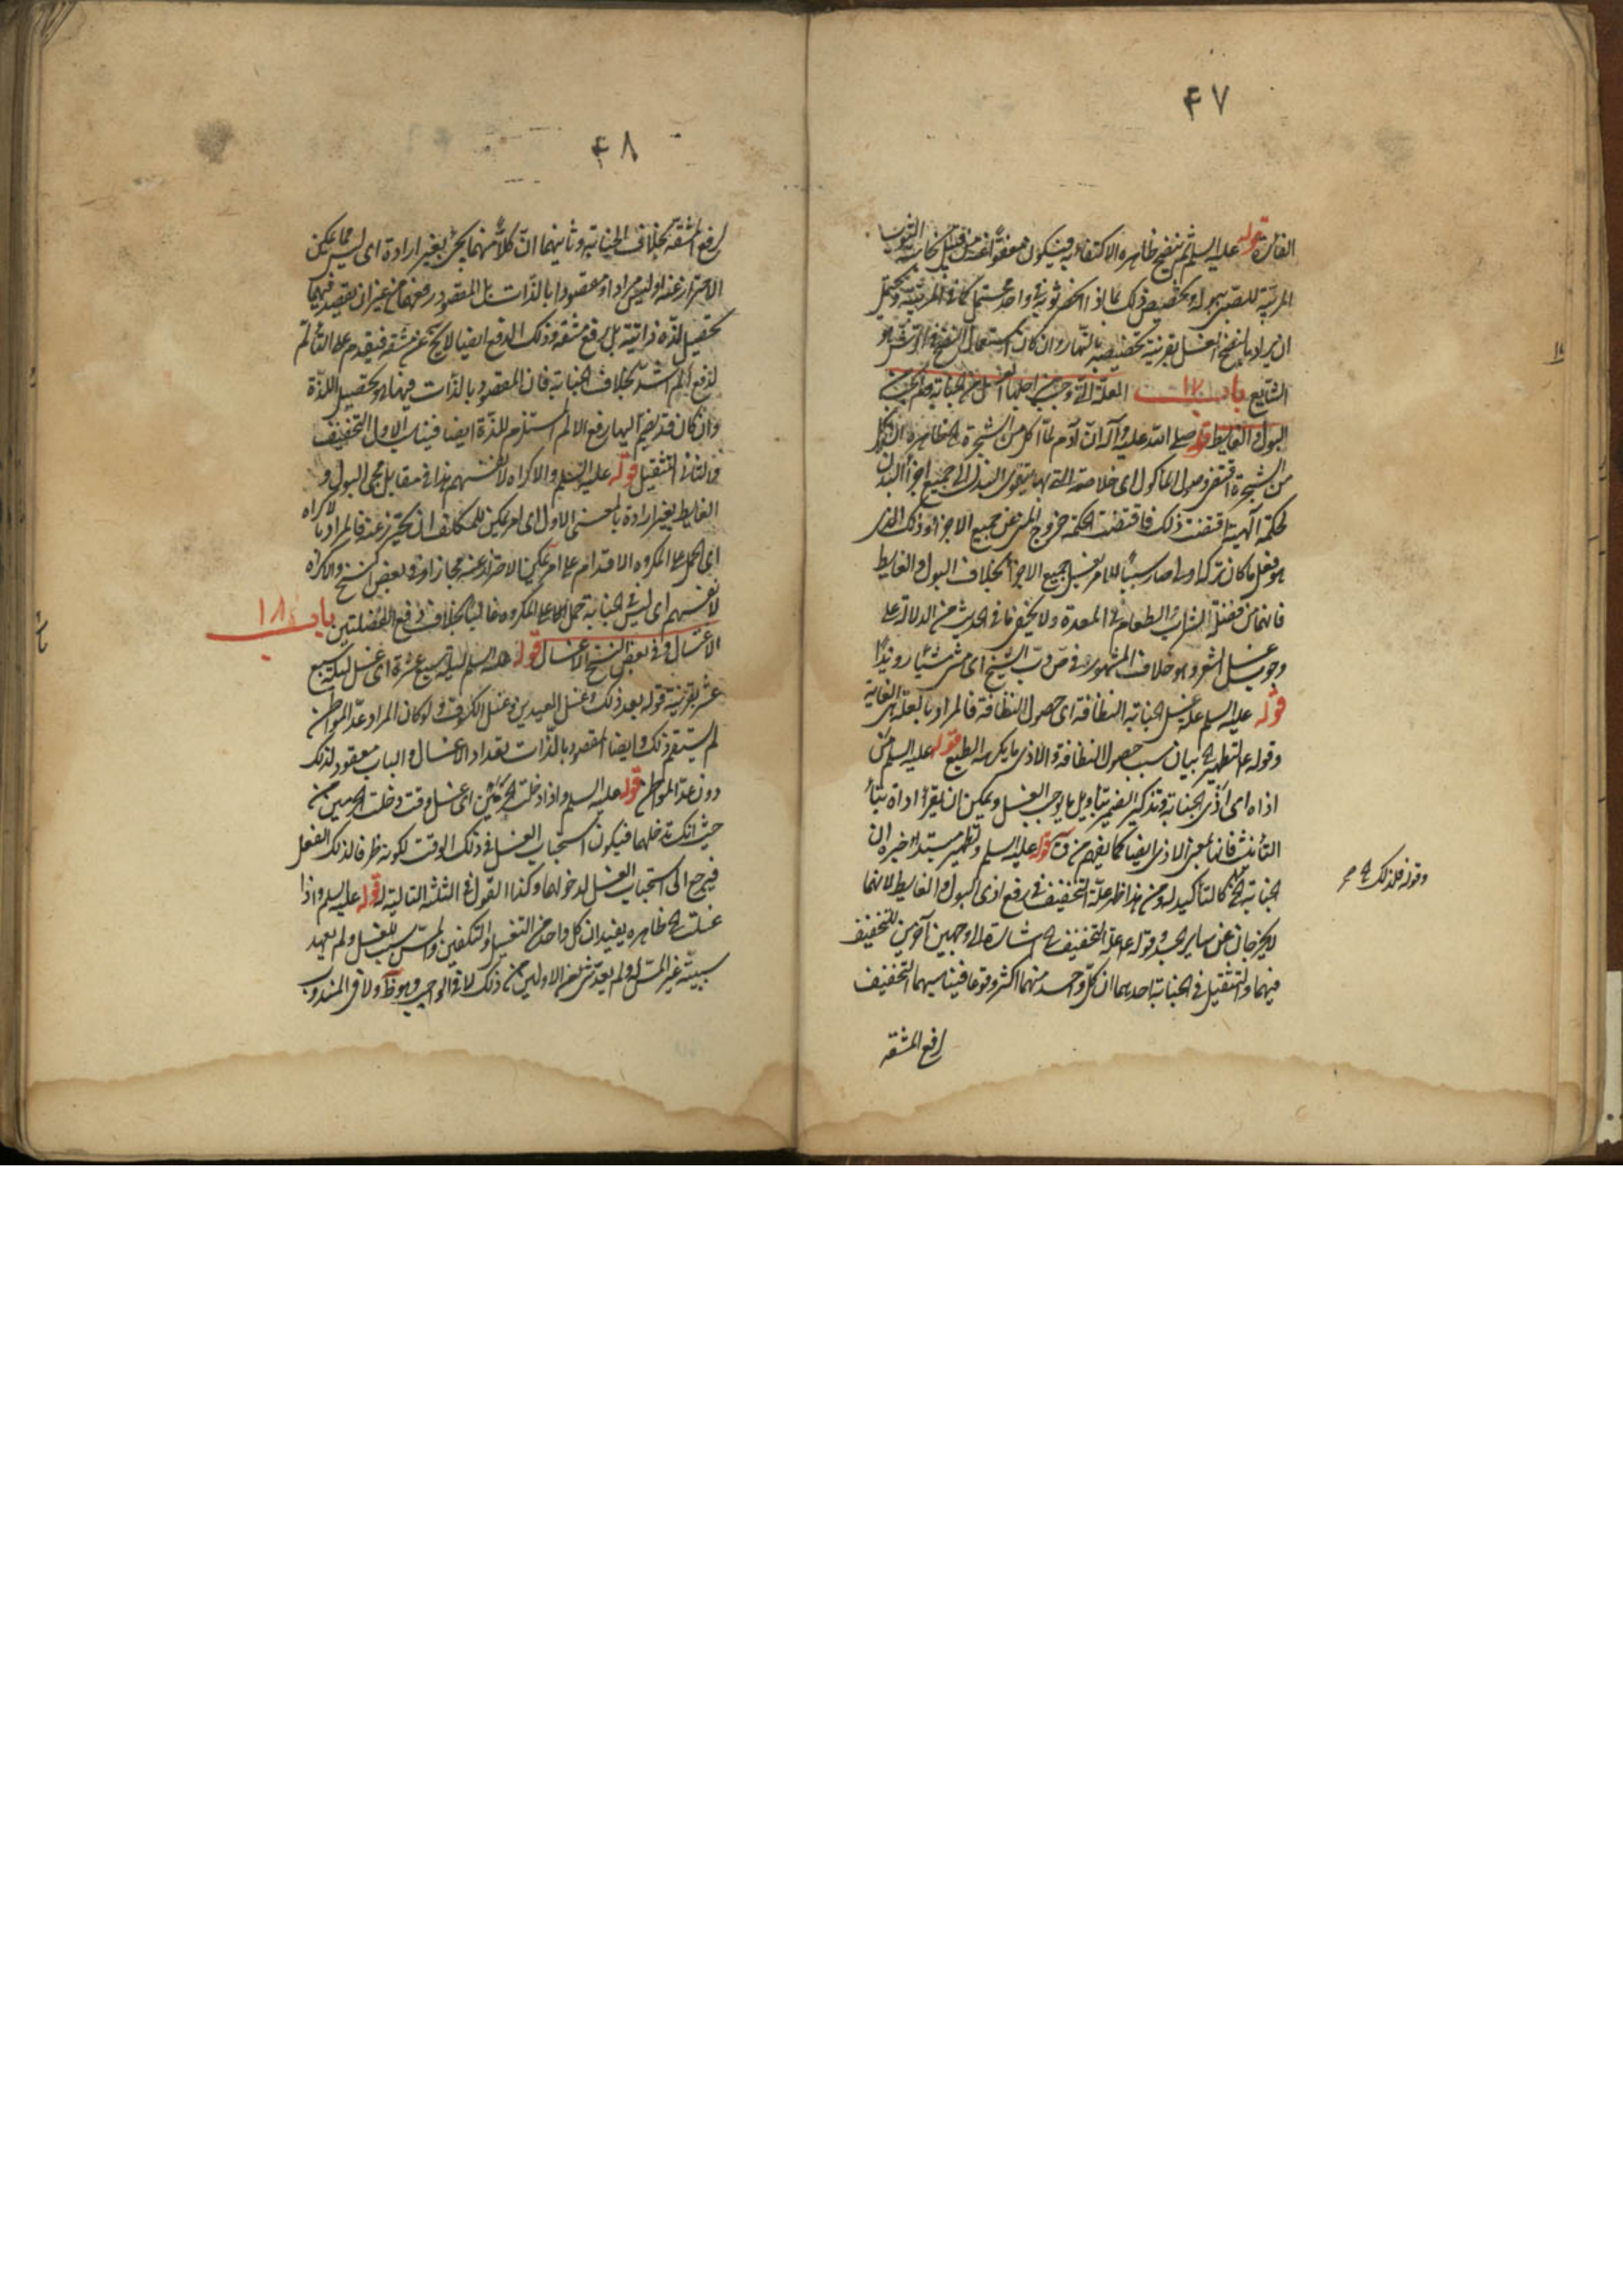 ۴۷
الفارة قوله عليه السلم ثم ينضح ظاهره الاكتفاء به فيكون معفوا عنه من قبيل نجاسة الثوب
المربية للصبي ببوله وتخصيص ذلك بما اذا انحصر ثوبه في واحد محتمل كما في المربية ويحتمل
ان يراد بالنضح الغسل بقرينة تخصيصه بالنهار وان كان استعمال النضح في الرش هو
الشايع باب ١٧ العلة التي وجب من اجلها الغسل من الجنابة ولم يجب من
البول والغايط قوله صلى الله عليه وآله ان آدم لما اكل من الشجرة الخ ظاهره ان اكل
من الشجرة اقتضى وصول المأكول اى خلاصته التي بها يتقوى البدن الى جميع اجزاء البدن
لحكمة الهية اقتضت ذلك فاقتضت الحكمة خروج المنى عن جميع الاجزاء وذلك الذى
هو فعل ما كان تركه اولى صار سببا للامر بغسل جميع الاجزاء بخلاف البول والغايط
فانهما من فضلة الشراب والطعام في المعدة ولا يخفى ما في الحديث من الدلالة على
وجوب غسل الشعر وهو خلاف المشهور
قوله عليه السلم علة غسل الجنابة النظافة اى حصول النظافة فالمراد بالعلة هى الغاية
وقوله عم لتطهير الخ بيان سبب حصول النظافة والاذى ما يكرهه الطبع قوله عليه السلم من
اذاه اى اذى الجنابة وتذكير الضمير بتاويل ما يوجب الغسل ويمكن ان يقرأ اداة بتاء
التأنيث فانها بمعنى الاذى ايضا كما يفهم من ق قوله عليه السلم وتطهير مبتدأ خبره ان
الجنابة الخ كالتأكيد له ومن هذا ظهر علة التخفيف في رفع اذى البول والغايط لانهما
لا يخرجان عن ساير الجسد وقوله عم علة التخفيف الخ اشارة الى وجهين آخرين للتخفيف
فيهما والتثقيل في الجنابة احدهما ان كل واحد منهما اكثر وقوعا فيناسبهما التخفيف
لرفع المشقة
وقوله فلذلك الخ صح
۴۸
لرفع المشقة بخلاف الجنابة وثانيهما ان كلا منهما يجئ بغير ارادة اى ليس مما يمكن
الاحتراز عنه او ليس مرادا ومقصودا بالذات بل المقصود رفعهما من غير ان يقصد فيهما
تحصيل لذة ذاتية بل رفع مشقة وذلك الدفع ايضا لا يخ عن مشقة فيقدم على التألم
لدفع ألم اشد بخلاف الجنابة فان المقصود بالذات فيها هو تحصيل اللذة
وان كان قد يضم اليها رفع الالم المستلزم للذة ايضا فيناسب الاول التخفيف
والثانى التثقيل قوله عليه السلم والاكراه لانفسهم هذا في مقابل مجئ البول و
الغايط بغير ارادة بالمعنى الاول اى امر يمكن للمكلف ان يحترز عنه فالمراد بالاكراه
اعنى الحمل على المكروه الاقدام على امر يمكن الاحتراز عنه مجازا وفي بعض النسخ والاكراه
لانفسهم اى ليس في الجنابة حمل الطباع على المكروه غالبا بخلاف دفع الفضلتين باب ١٨
الاغسال وفي بعض النسخ الاغتسال قوله عليه السلم ليلة سبع عشرة اى غسل ليلة سبع
عشر بقرينة قوله بعد ذلك وغسل العيدين وغسل الكسوف ولو كان المراد عد المواطن
لم يستقم ذلك وايضا المقصود بالذات تعداد الاغسال والباب معقود لذلك
دون عد المواطن قوله عليه السلم واذا دخلت الحرمين اى غسل وقت دخلت الحرمين من
حيث انك تدخلهما فيكون استحباب الغسل في ذلك الوقت لكونه ظرفا لذلك الفعل
فيرجع الى استحباب الغسل لدخولهما وكذا القول في الثلثة التالية له قوله عليه السلم واذا
غسلت الخ ظاهره يفيد ان كل واحد من التغسيل والتكفين والمس سبب للغسل ولم يعهد
سببية غير المس ولم يعد شئ من الاولين من ذلك لا في الواجب وهو ظ ولا في المندوب